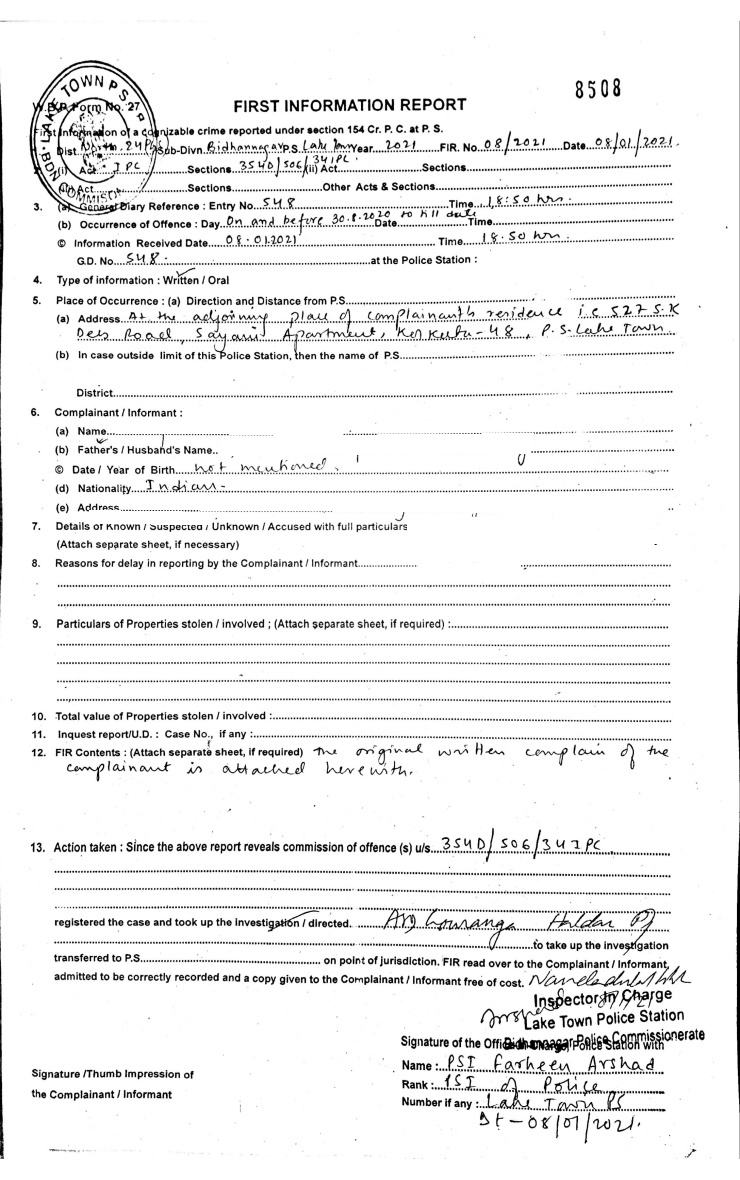 8508
LAKE TOWN PS
W.B.P. Form No. 27
FIRST INFORMATION REPORT
First Information of a cognizable crime reported under section 154 Cr. P. C. at P. S.
Dist. North 24 Pgs Sub-Divn. Bidhannagar P.S. Lake Town Year 2021 FIR. No. 08/2021 Date 08/01/2021.
(i) Act IPC Sections 354D/506/34 IPC (ii) Act Sections
Act Sections Other Acts & Sections
3. (a) General Diary Reference : Entry No. 548 Time 18:50 hrs.
(b) Occurrence of Offence : Day On and before 30.8.2020 to till date Date Time
© Information Received Date 08.01.2021 Time 18.50 hrs.
G.D. No. 548. at the Police Station :
4. Type of information : Written / Oral
5. Place of Occurrence : (a) Direction and Distance from P.S.
(a) Address At the adjoining place of complainant's residence i.e 527 S.K
Deb Road, Sayani Apartment, Kolkata-48, P.S-Lake Town
(b) In case outside limit of this Police Station, then the name of P.S.
District
6. Complainant / Informant :
(a) Name
(b) Father's / Husband's Name..
© Date / Year of Birth not mentioned.
(d) Nationality Indian-
(e) Address
7. Details of Known / Suspected / Unknown / Accused with full particulars
(Attach separate sheet, if necessary)
8. Reasons for delay in reporting by the Complainant / Informant
9. Particulars of Properties stolen / involved ; (Attach separate sheet, if required) :
10. Total value of Properties stolen / involved :
11. Inquest report/U.D. : Case No., if any :
12. FIR Contents : (Attach separate sheet, if required) The original written complain of the
complainant is attached herewith.
13. Action taken : Since the above report reveals commission of offence (s) u/s. 354D/506/34 IPC
registered the case and took up the investigation / directed. ASI Gouranga Haldar
to take up the investigation
transferred to P.S. on point of jurisdiction. FIR read over to the Complainant / Informant,
admitted to be correctly recorded and a copy given to the Complainant / Informant free of cost.
Inspector In Charge
Lake Town Police Station
Bidhannagar Police Commissionerate
Signature of the Officer Police Station with
Name : PSI Farheen Arshad
Signature /Thumb Impression of
Rank : PSI of Police
the Complainant / Informant
Number if any : Lake Town PS
Dt - 08/01/2021.